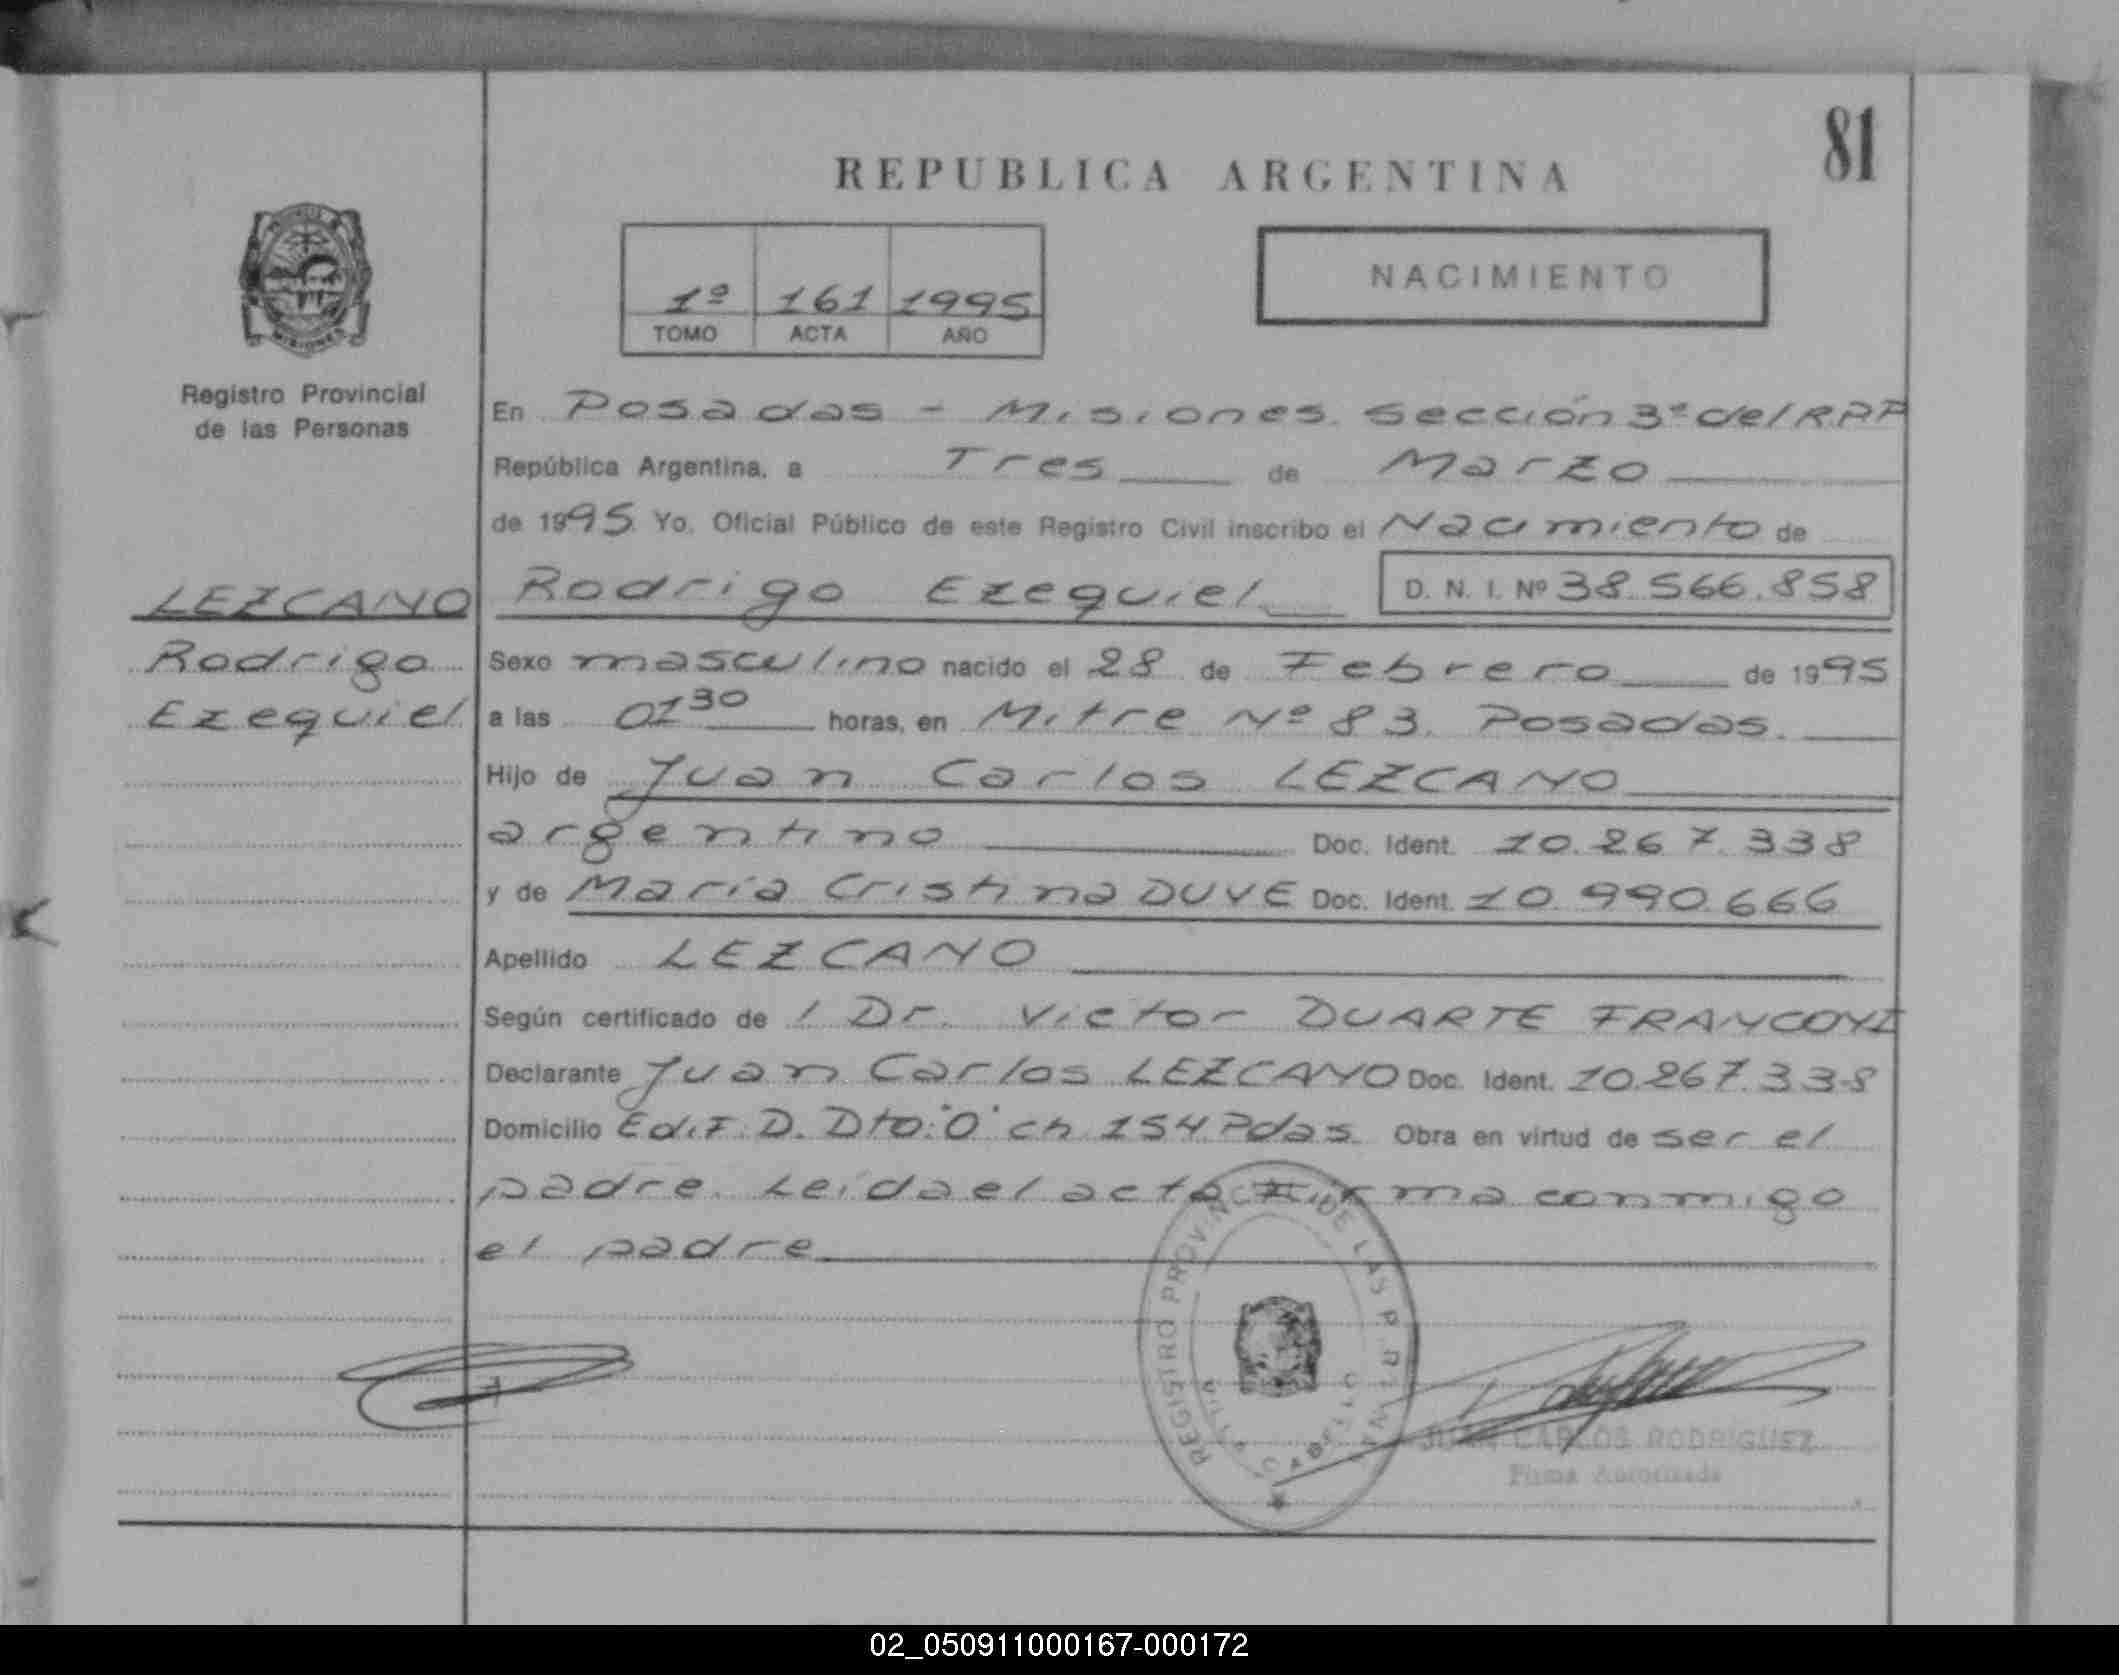 81
REPUBLICA ARGENTINA
1º 161 1995
TOMO ACTA AÑO
NACIMIENTO
MISIONES
Registro Provincial
de las Personas
En Posadas - Misiones. Sección 3ª del R.P.P
República Argentina, a Tres de Marzo
de 1995. Yo, Oficial Público de este Registro Civil inscribo el Nacimiento de
LEZCANO
Rodrigo
Ezequiel
Rodrigo Ezequiel D. N. I. Nº 38.566.858
Sexo masculino nacido el 28 de Febrero de 1995
a las 01 30 horas, en Mitre Nº 83. Posadas.
Hijo de Juan Carlos LEZCANO
argentino Doc. Ident. 10.267.338
y de María Cristina DUVE Doc. Ident. 10.990.666
Apellido LEZCANO
Según certificado de l Dr. Victor DUARTE FRANCOYI
Declarante Juan Carlos LEZCANO Doc. Ident. 10.267.338
Domicilio Edif. D. Dto: "O" ch 154 Pdas. Obra en virtud de ser el
padre. Leída el acta Firma conmigo
el padre
REGISTRO PROVINCIAL DE LAS P.
JUAN CARLOS RODRIGUEZ
Firma Autorizada
02_050911000167-000172